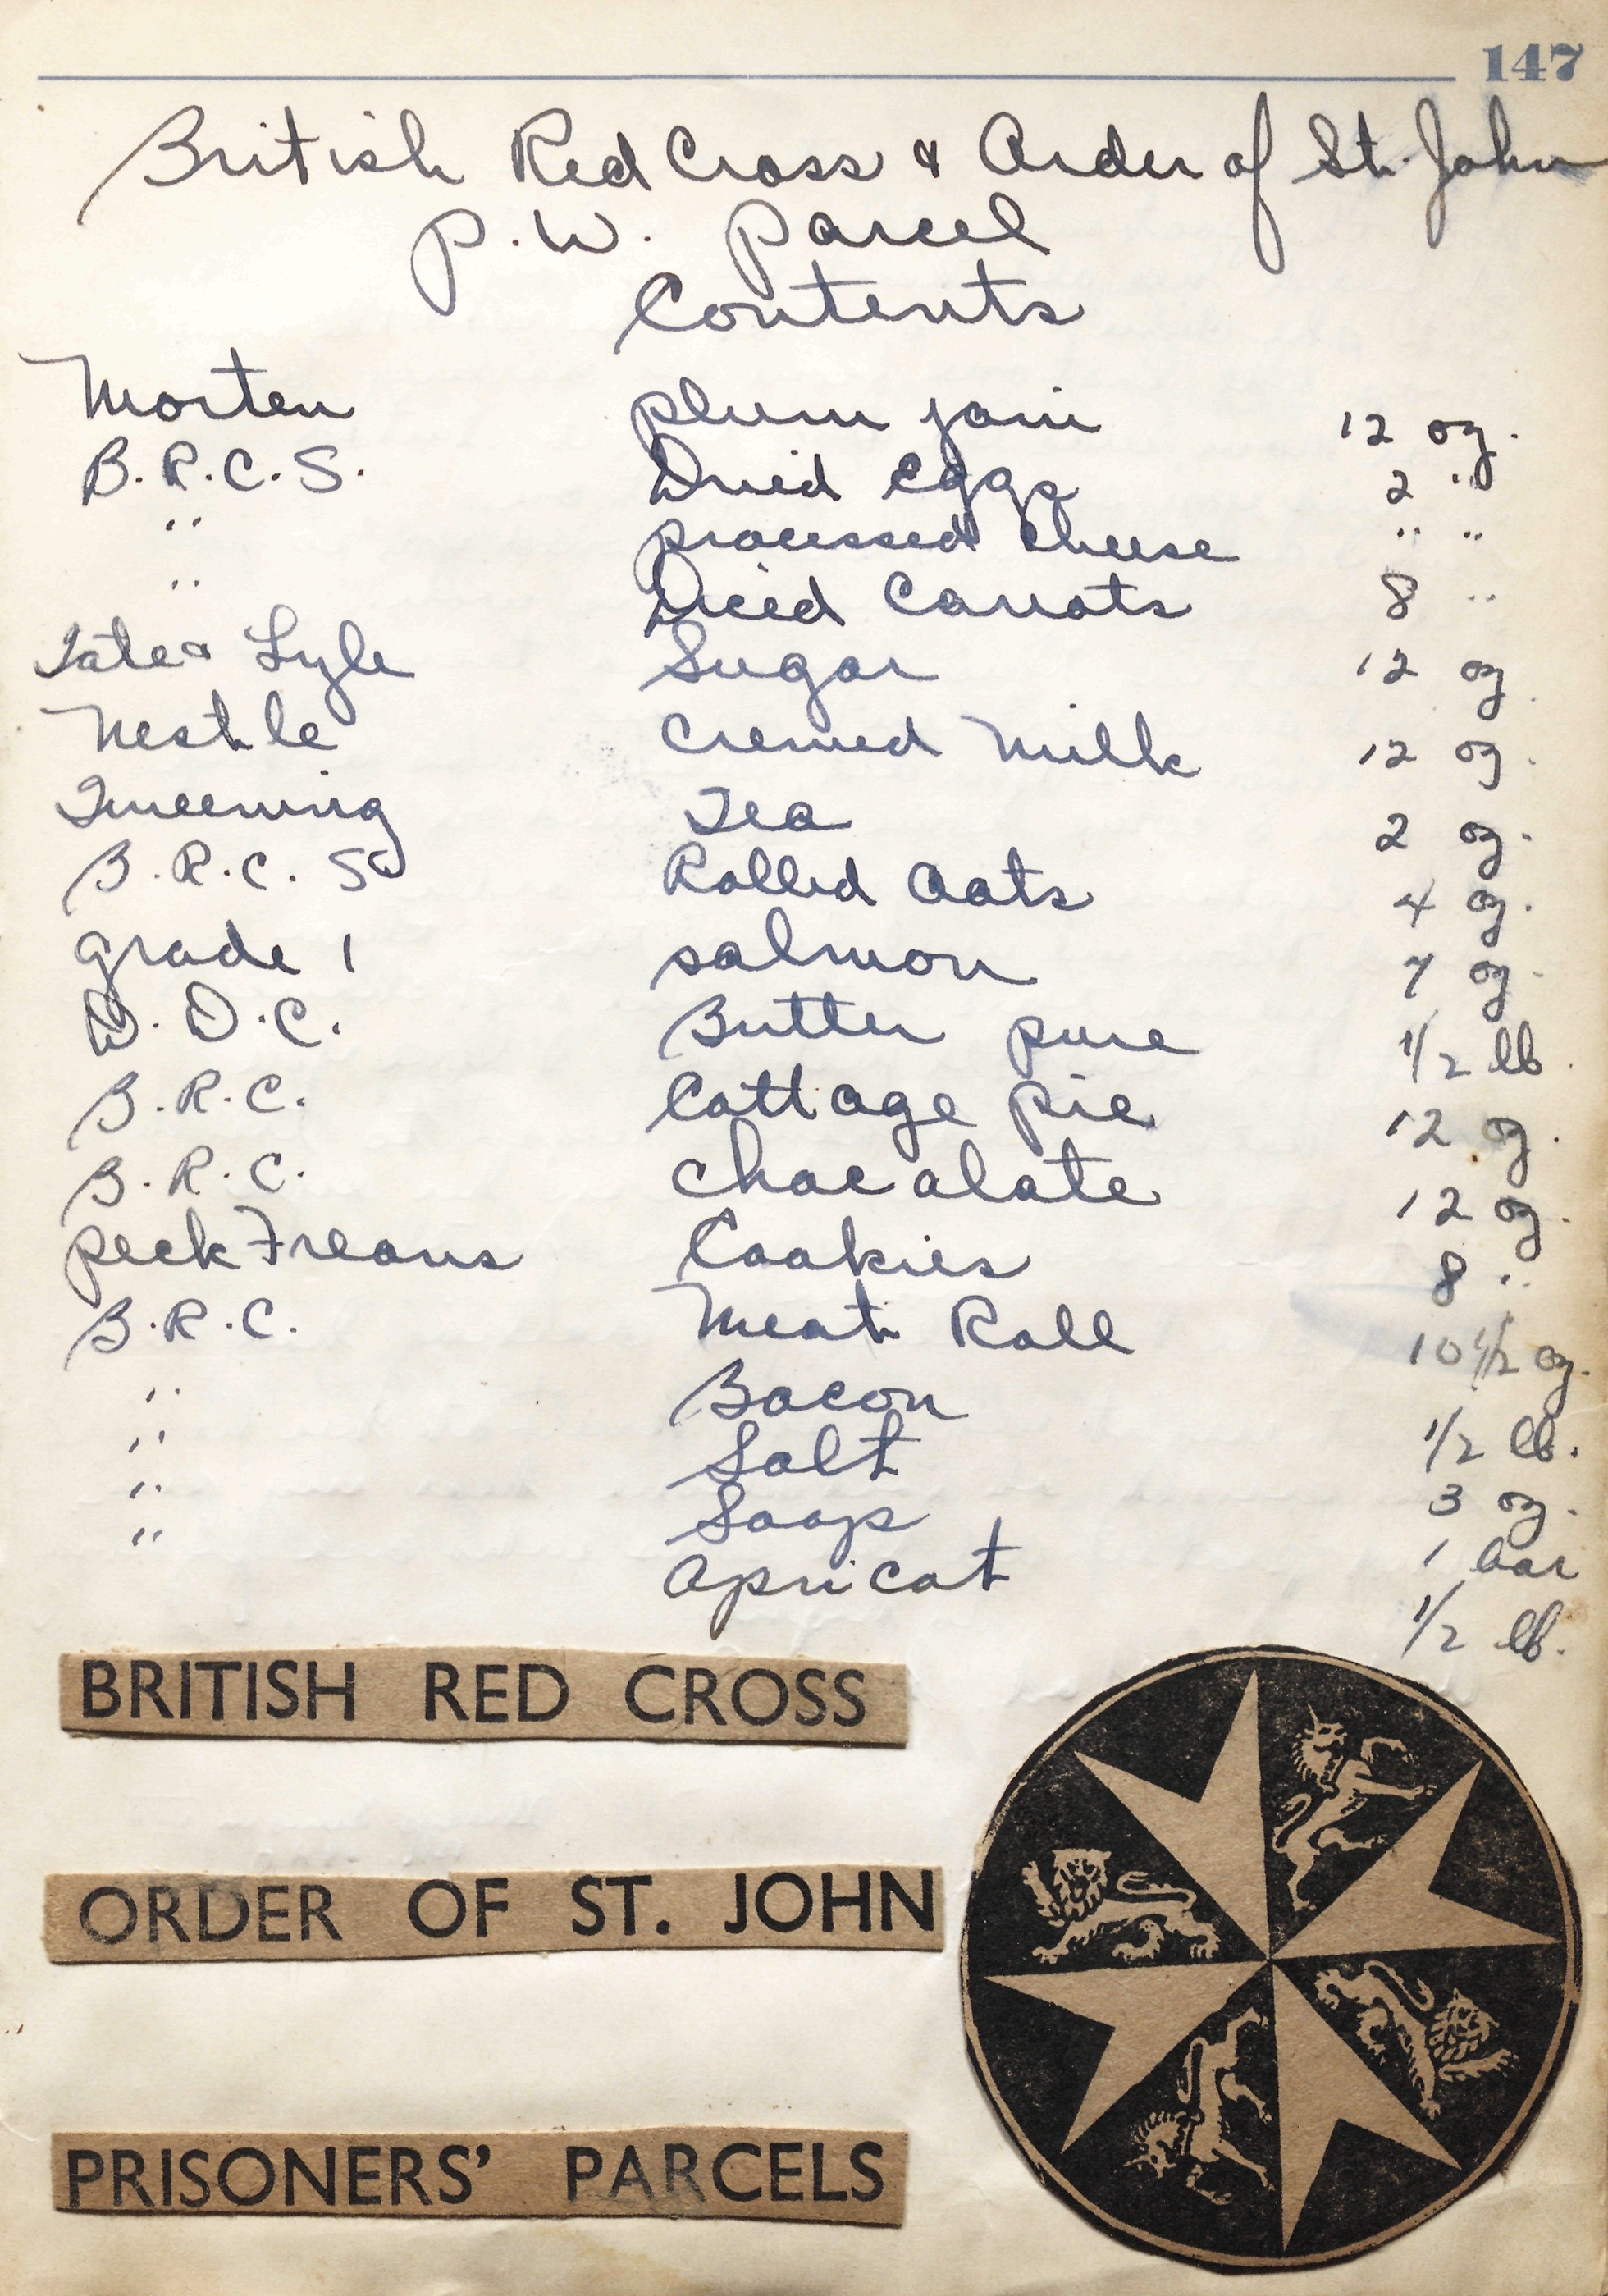 147
British Red Cross & Order of St. John
P.W. Parcel
Contents
Morten plum jam 12 oz.
B.R.C.S. Dried Eggs 2 "
" processed cheese " "
" Diced Carrots 8 "
Tate & Lyle Sugar 12 oz.
Nestle Cremed Milk 12 oz.
Tea 2 oz.
B.R.C.S. Rolled Oats 4 oz.
grade 1 salmon 7 oz.
D.D.C. Butter pure 1/2 lb.
B.R.C. Cottage pie 12 oz.
B.R.C. chocolate 12 oz.
Peek Freans Cookies 8 "
B.R.C. Meat Roll 10 1/2 oz.
" Bacon 1/2 lb.
" Salt 3 oz.
" Soap 1 bar
" Apricot 1/2 lb.
BRITISH RED CROSS
ORDER OF ST. JOHN
PRISONERS' PARCELS